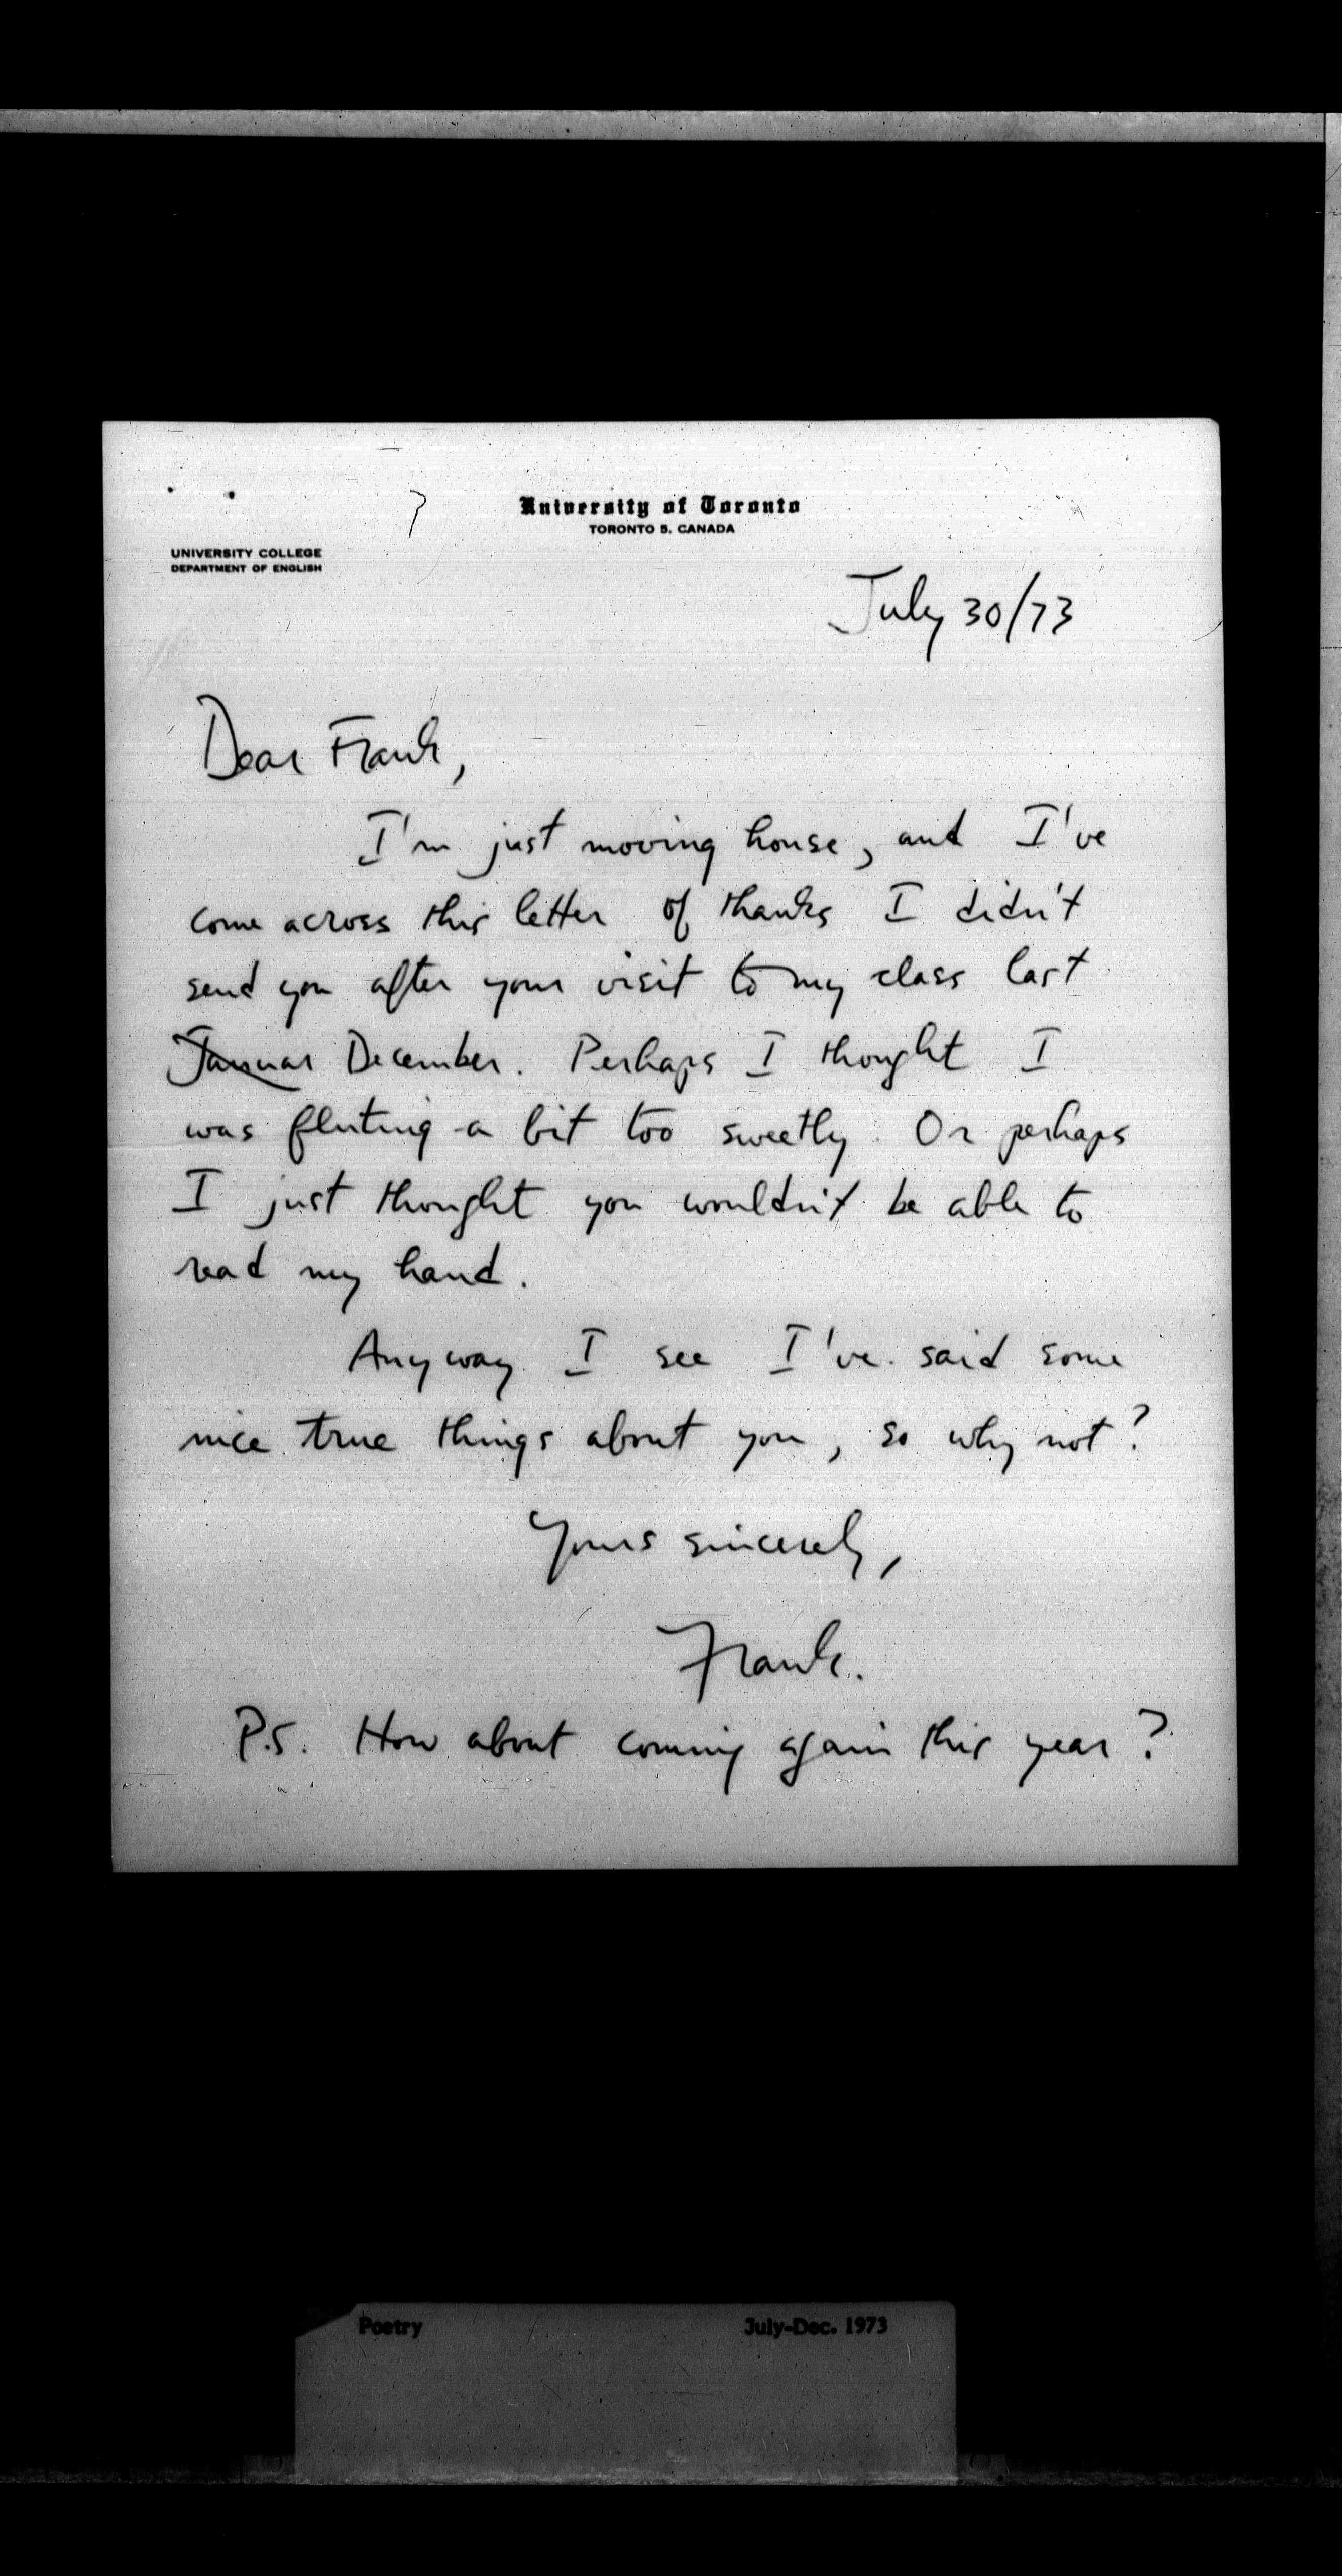 ?
University of Toronto
TORONTO 5, CANADA
UNIVERSITY COLLEGE
DEPARTMENT OF ENGLISH
July 30/73
Dear Frank,
I'm just moving house, and I've
come across this letter of thanks I didn't
send you after your visit to my class last
Januar December. Perhaps I thought I
was fluting a bit too sweetly. Or perhaps
I just thought you wouldn't be able to
read my hand.
Anyway I see I've said some
nice true things about you, so why not?
Yours sincerely,
Frank.
P.S. How about coming again this year?
Poetry July-Dec. 1973